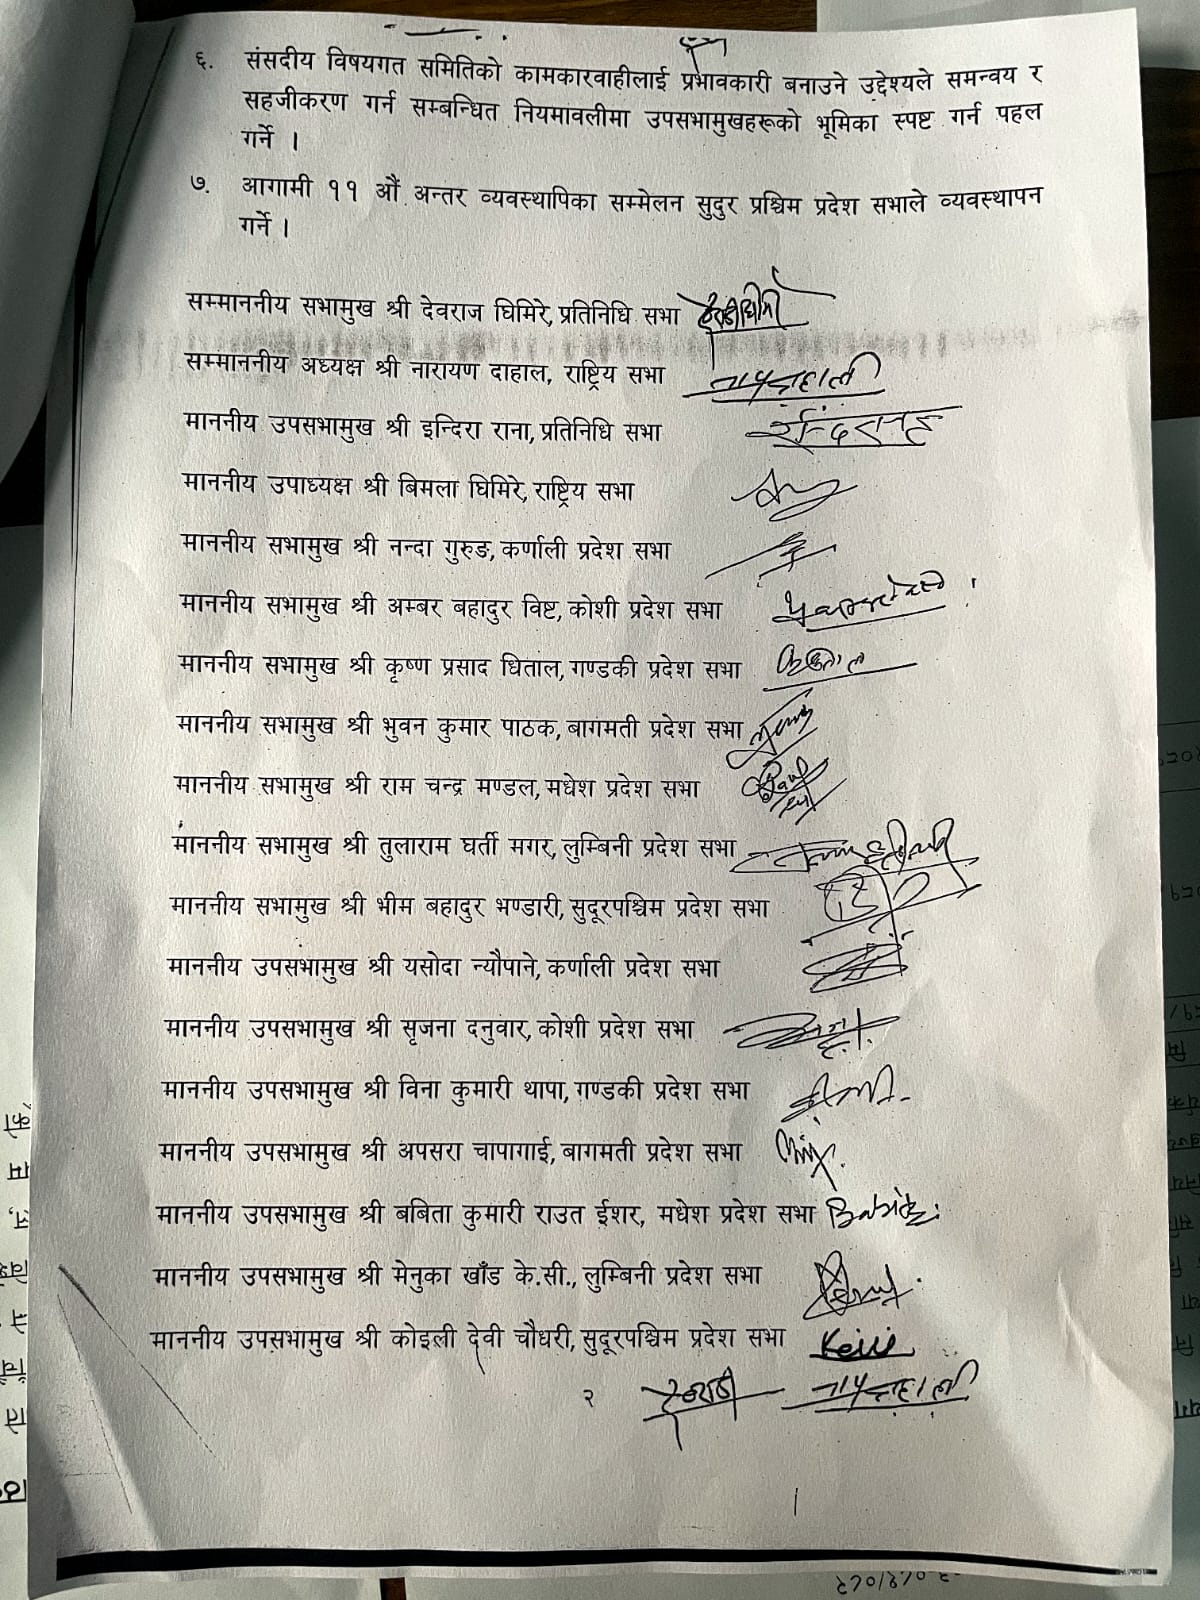 ६. संसदीय विषयगत समितिको कामकारवाहीलाई प्रभावकारी बनाउने उद्देश्यले समन्वय र
सहजीकरण गर्न सम्बन्धित नियमावलीमा उपसभामुखहरूको भूमिका स्पष्ट गर्न पहल
गर्ने ।
७. आगामी ११ औं अन्तर व्यवस्थापिका सम्मेलन सुदुर प्रश्चिम प्रदेश सभाले व्यवस्थापन
गर्ने ।
सम्माननीय सभामुख श्री देवराज घिमिरे, प्रतिनिधि सभा
सम्माननीय अध्यक्ष श्री नारायण दाहाल, राष्ट्रिय सभा
माननीय उपसभामुख श्री इन्दिरा राना, प्रतिनिधि सभा
माननीय उपाध्यक्ष श्री बिमला घिमिरे, राष्ट्रिय सभा
माननीय सभामुख श्री नन्दा गुरुङ, कर्णाली प्रदेश सभा
माननीय सभामुख श्री अम्बर बहादुर विष्ट, कोशी प्रदेश सभा
माननीय सभामुख श्री कृष्ण प्रसाद धिताल, गण्डकी प्रदेश सभा
माननीय सभामुख श्री भुवन कुमार पाठक, बागमती प्रदेश सभा
माननीय सभामुख श्री राम चन्द्र मण्डल, मधेश प्रदेश सभा
माननीय सभामुख श्री तुलाराम घर्ती मगर, लुम्बिनी प्रदेश सभा
माननीय सभामुख श्री भीम बहादुर भण्डारी, सुदूरपश्चिम प्रदेश सभा
माननीय उपसभामुख श्री यसोदा न्यौपाने, कर्णाली प्रदेश सभा
माननीय उपसभामुख श्री सृजना दनुवार, कोशी प्रदेश सभा
माननीय उपसभामुख श्री विना कुमारी थापा, गण्डकी प्रदेश सभा
माननीय उपसभामुख श्री अपसरा चापागाई, बागमती प्रदेश सभा
माननीय उपसभामुख श्री बबिता कुमारी राउत ईशर, मधेश प्रदेश सभा
माननीय उपसभामुख श्री मेनुका खाँड के.सी., लुम्बिनी प्रदेश सभा
माननीय उपसभामुख श्री कोइली देवी चौधरी, सुदूरपश्चिम प्रदेश सभा
२